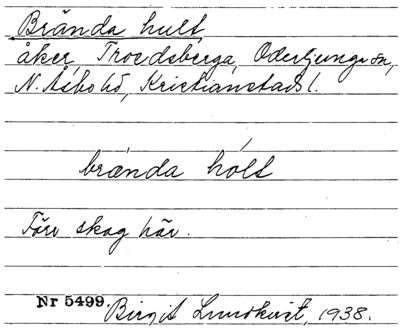 Brända hult,
åker, Troedsberga, Oderljunga sn,
N. Åsbo hd, Kristianstads l.
brända hólt
Förr skog här.
Nr 5499. Birgit Lundkvist, 1938.